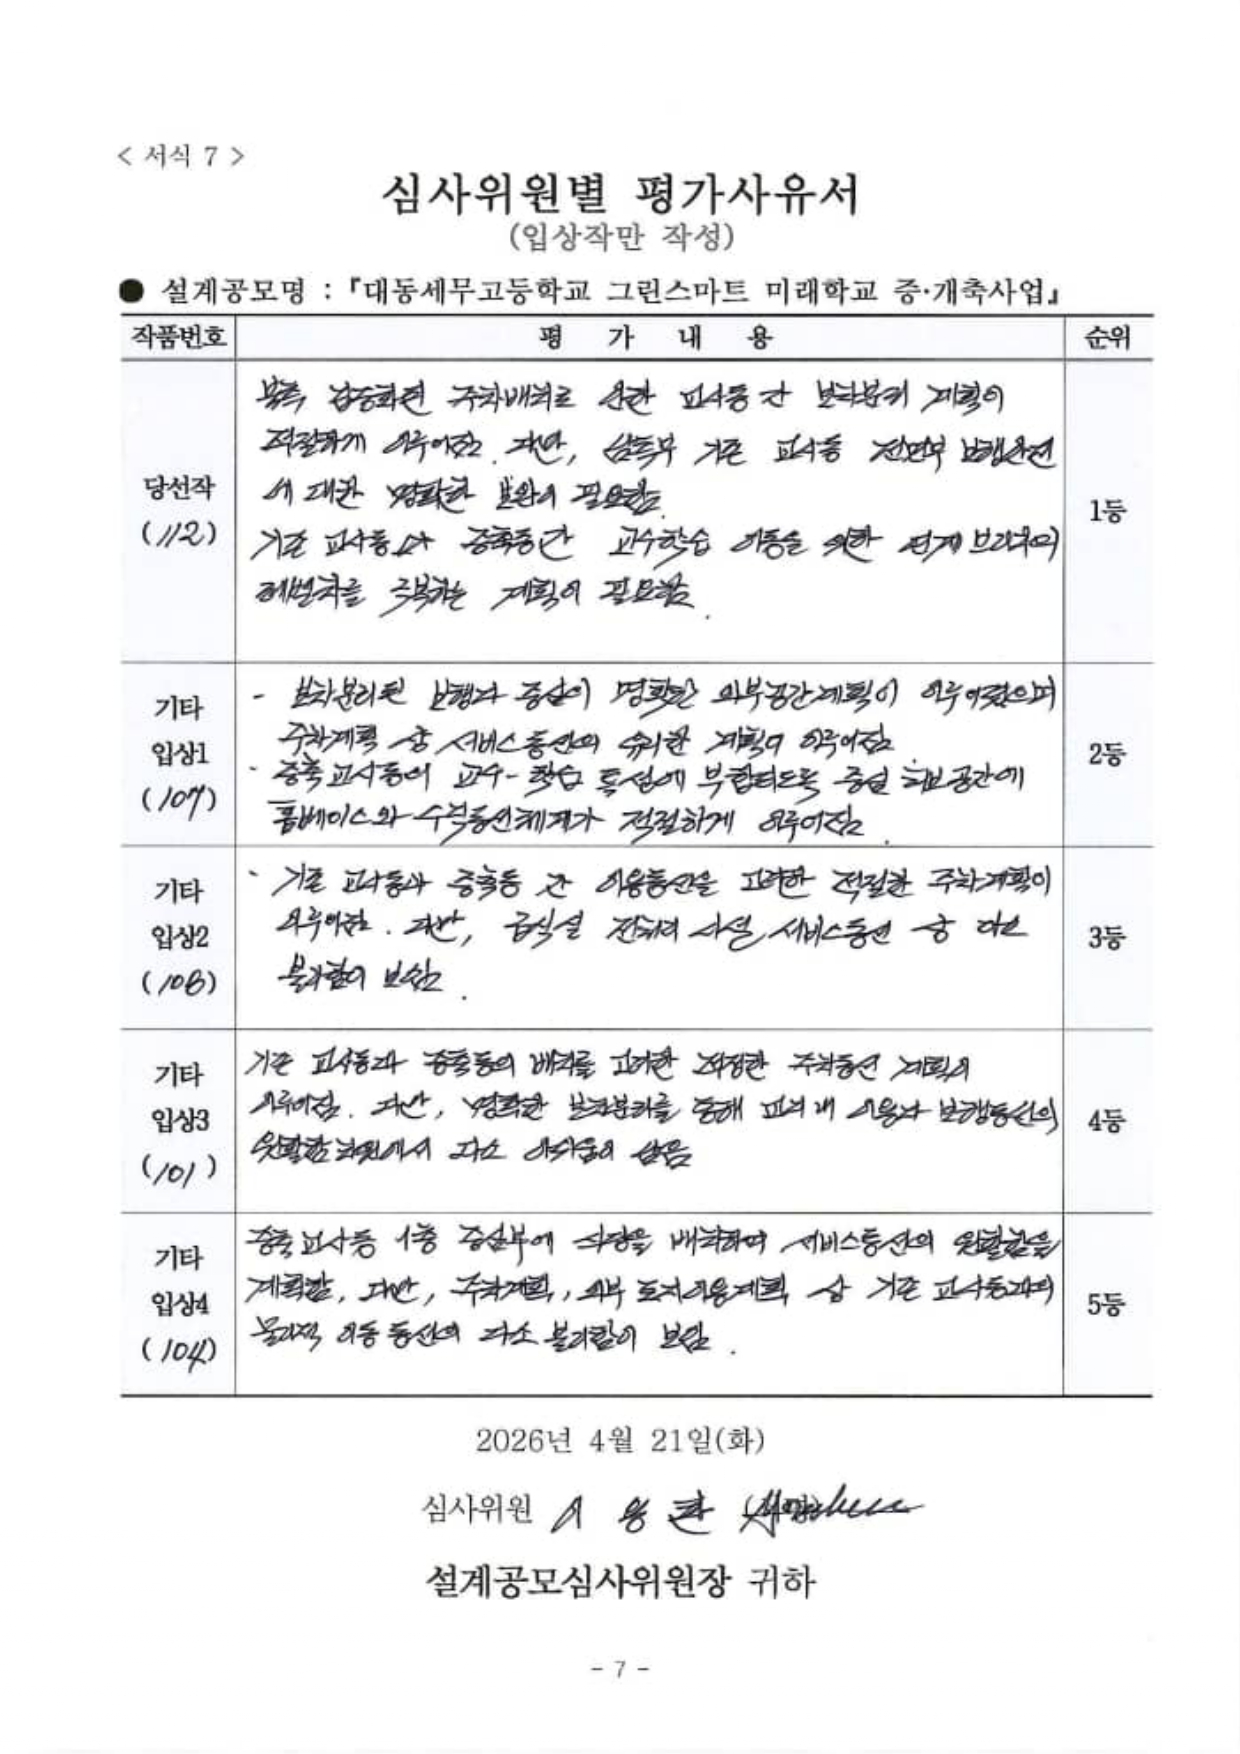 < 서식 7 >
심사위원별 평가사유서
(입상작만 작성)
● 설계공모명 : 『대동세무고등학교 그린스마트 미래학교 증·개축사업』
작품번호 평 가 내 용 순위
당선작
(112)
북측 주차배치로 인한 교사동 간 보차분리 계획이
적절하게 이루어짐. 다만, 남동부 기존 교사동 전면부 보행안전
에 대한 명확한 보완이 필요함.
기존 교사동과 증축동간 교수학습 이동을 위한 연계 브릿지의
레벨차를 극복하는 계획이 필요함.
1등
기타
입상1
(107)
- 보차분리된 보행자 중심이 명확한 외부공간계획이 이루어졌으며
주차계획 상 서비스동선의 유리한 계획이 이루어짐
- 증축교사동의 교수-학습 특성에 부합되도록 중심 공간에
홈베이스와 수직동선체계가 적절하게 이루어짐.
2등
기타
입상2
(108)
- 기존 교사동과 증축동 간 이용동선을 고려한 적절한 주차계획이
이루어짐. 다만, 급식실 전처리 시설 서비스동선 상 다소
불리함이 보임.
3등
기타
입상3
(101)
기존 교사동과 증축동의 배치를 고려한 적정한 주차동선 계획이
이루어짐. 다만, 명확한 보차분리를 통해 교내 이용자 보행동선의
원활함 차원에서 다소 아쉬움이 남음
4등
기타
입상4
(104)
증축교사동 1층 중심부에 식당을 배치하여 서비스동선의 원활함을
계획함. 다만, 주차계획, 외부 토지이용계획 상 기존 교사동과의
물리적 이동 동선의 다소 불리함이 보임.
5등
2026년 4월 21일(화)
심사위원 이 용 환 (서명)
설계공모심사위원장 귀하
- 7 -